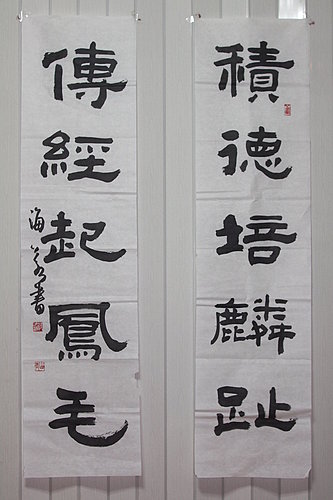 積德培麟趾
傳經起鳳毛